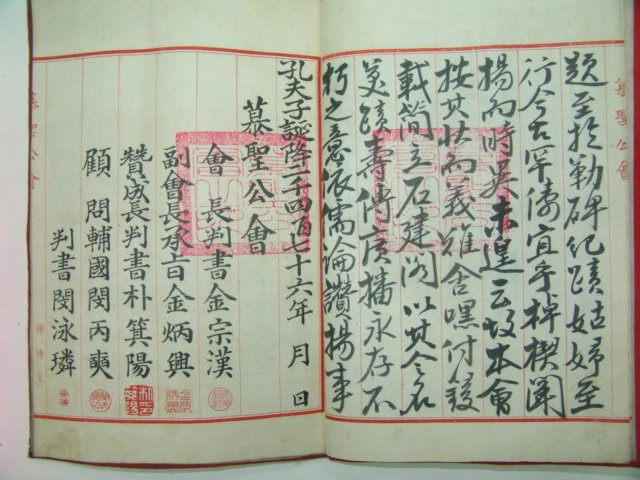 題至於勒碑紀蹟姑婦至
行今古罕儔宜乎棹楔闡
揚而時異未遑云故本會
按其狀而義難含嘿付鋟
載簡立石建閣以其令名
美蹟壽傳廣播永存不
朽之意依儒論讚揚事
孔夫子誕降二千四百七十六年 月 日
慕聖公會
會長判書金宗漢
副會長承旨金炳興
贊成長判書朴箕陽
顧問輔國閔丙奭
判書閔泳璘
慕聖公會